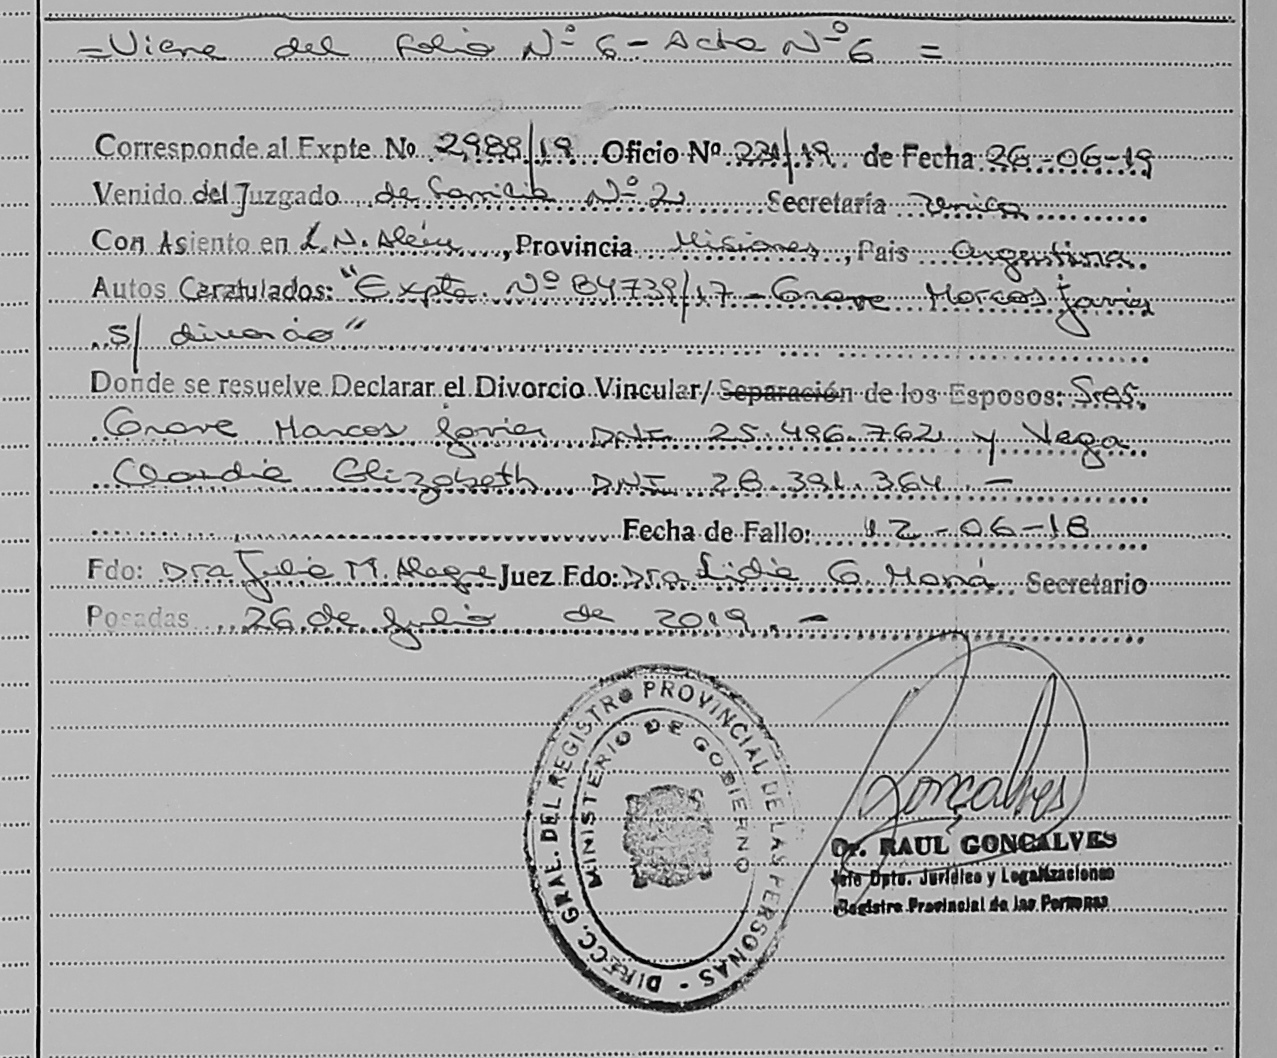 =Viene del folio Nº 6- Acta Nº 6 =
Corresponde al Expte Nº 2988/19 Oficio Nº 231/19 de Fecha 26-06-19
Venido del Juzgado de Familia Nº 2 Secretaría Unica
Con Asiento en L.N. Além, Provincia Misiones, Pais Argentina.
Autos Caratulados: "Expte. Nº 84739/17 - Grave Marcos Javier
s/ divorcio"
Donde se resuelve Declarar el Divorcio Vincular/ Separación de los Esposos: Sres.
Grave Marcos Javier DNI 25.496.762 y Vega
Claudia Elizabeth DNI 28.391.364 -
Fecha de Fallo: 12-06-18
Fdo: Dra Julia M. Alegre Juez Fdo: Dra. Lidia G. Juez Fdo: Secretario
Posadas 26 de Julio de 2019.-
DIRECC. GRAL. DEL REGISTRO PROVINCIAL DE LAS PERSONAS -
MINISTERIO DE GOBIERNO
Gonçalves
Dr. RAUL GONCALVES
Jefe Dpto. Jurídico y Legalizaciones
Registro Provincial de las Personas